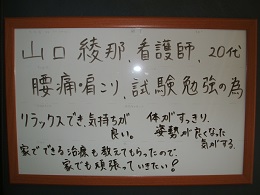 山口 綾那、看護師、20代
腰痛・肩こり、試験勉強の為
リラックスでき、気持ちが良い。
体がすっきり、姿勢が良くなった気がする。
家でできる治療も教えてもらったので、
家でも頑張っていきたい!